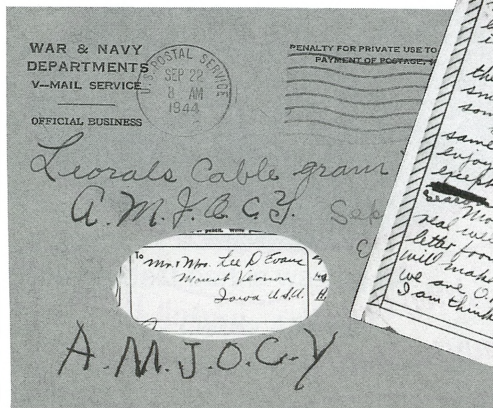 WAR & NAVY
DEPARTMENTS
V—MAIL SERVICE
OFFICIAL BUSINESS
U.S. POSTAL SERVICE
SEP 22
8 AM
1944
PENALTY FOR PRIVATE USE TO
PAYMENT OF POSTAGE, $
Leorals Cable gram
A.M.J.O.C.Y. Sep
To
Mr. & Mrs. Lee D Evans
Mount Vernon
Iowa U.S.A.
A.M.J.O.C.Y
th
som
same
enjoy
excep
Mo
real
letter from
will make
we are O.
I am think